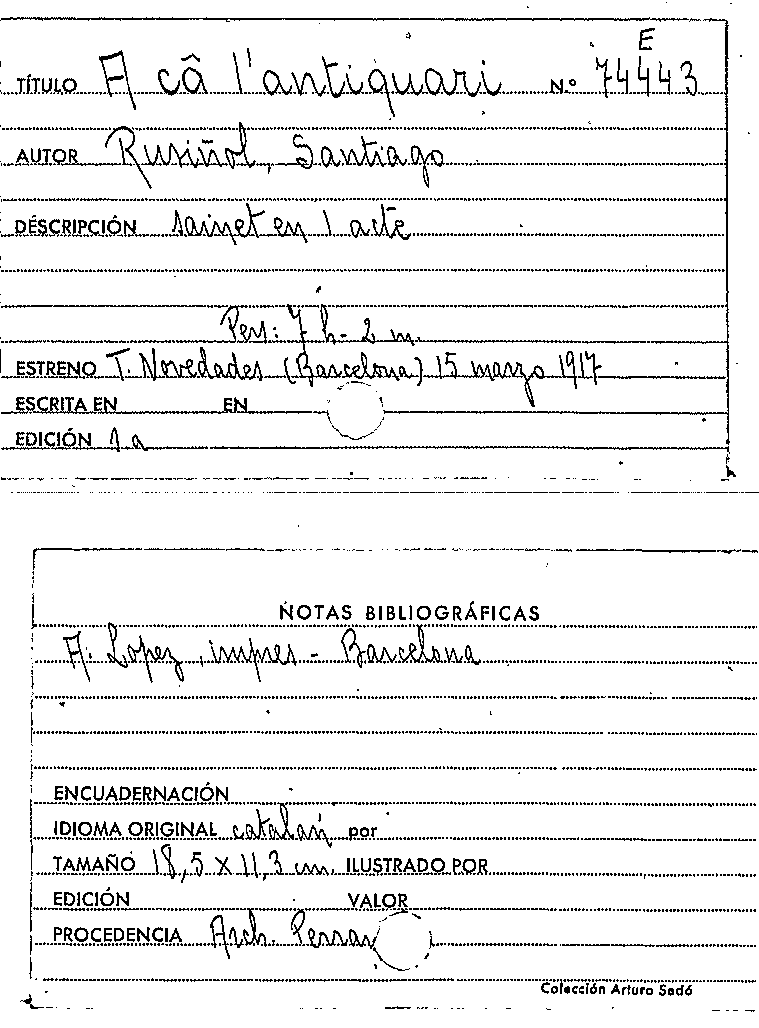 E
TÍTULO A câ l'antiquari N.º 74443
AUTOR Rusiñol, Santiago
DESCRIPCIÓN sainet en 1 acte
Pers: 7 h - 2 m.
ESTRENO T. Novedades (Barcelona) 15 marzo 1917
ESCRITA EN EN
EDICIÓN 1a
NOTAS BIBLIOGRÁFICAS
A. Lopez, impres - Barcelona
ENCUADERNACIÓN
IDIOMA ORIGINAL catalán por
TAMAÑO 18,5 X 11,3 cm. ILUSTRADO POR
EDICIÓN VALOR
PROCEDENCIA Arch.
Colección Arturo Sedó